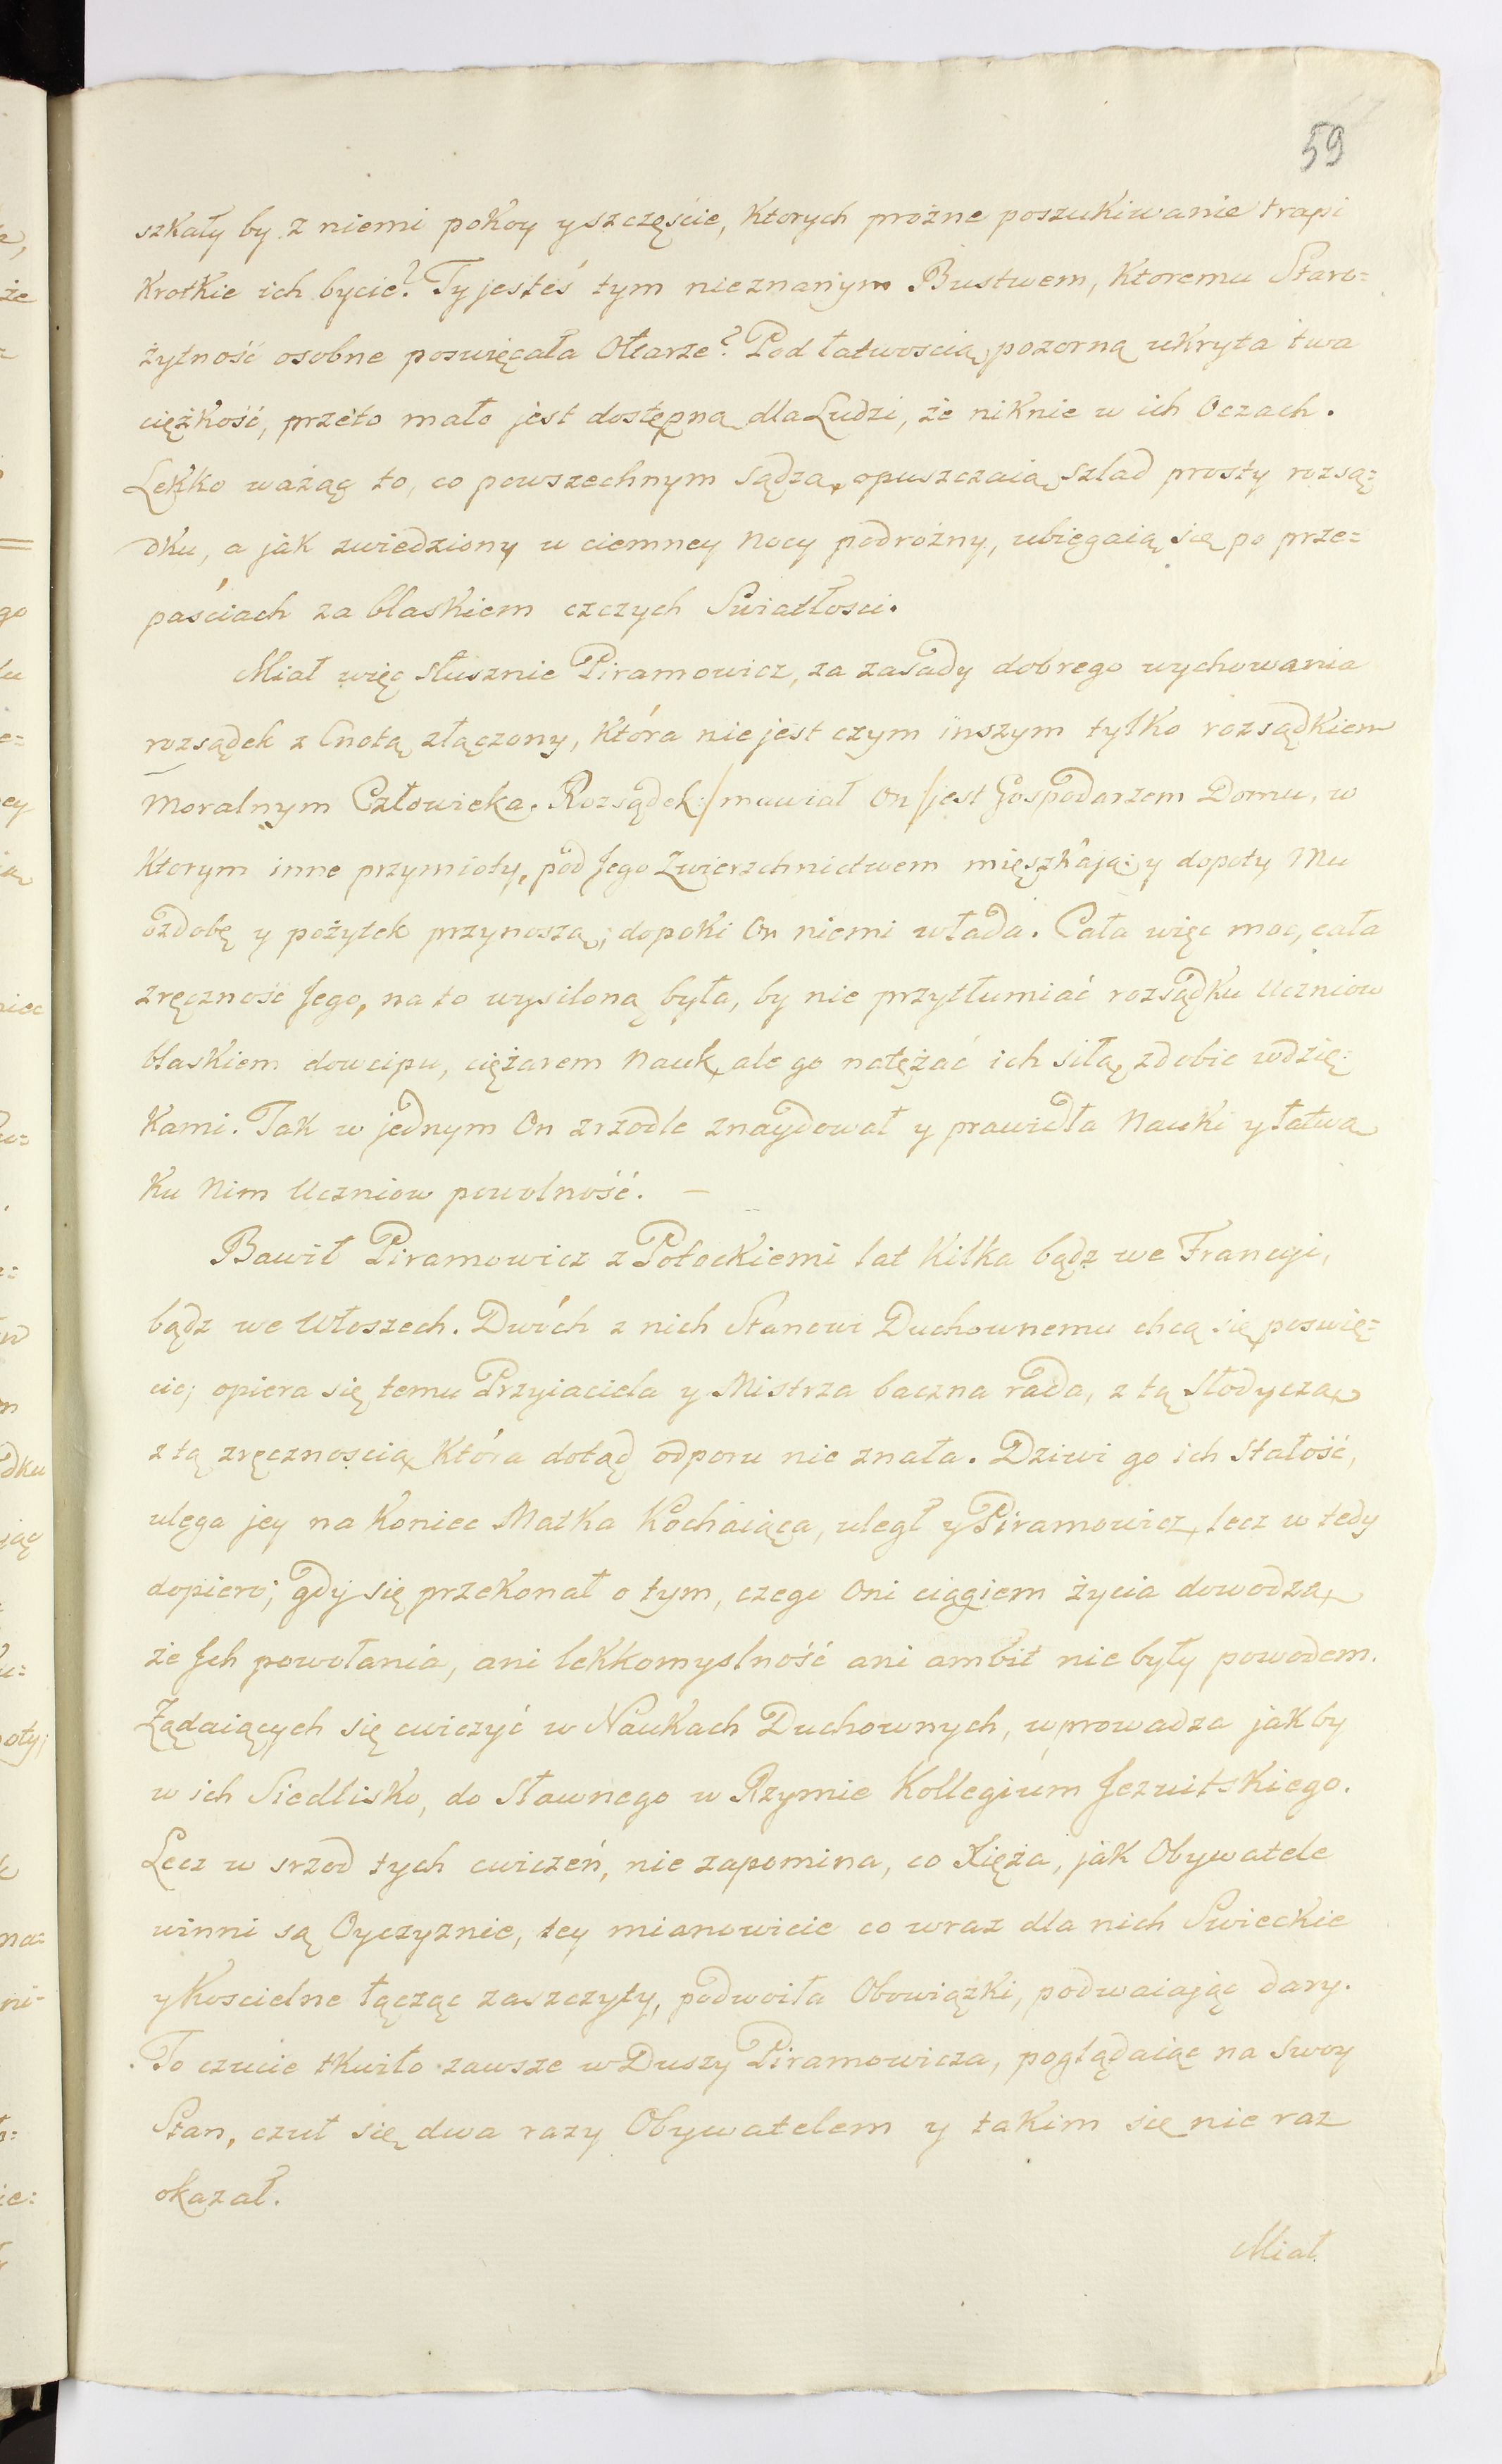 59
szkały by z niemi pokoy y szczęście, ktorych prożne poszukiwanie trapi
krotkie ich bycie? Ty jesteś tym nieznanym Bustwem, ktoremu Staro=
żytność osobne poswięcała Ołtarze? Pod łatwoscią pozorną ukryta twa
ciężkość, przeto mało jest dostępną dla Ludzi, że niknie w ich Oczach.
Lekko ważąc to, co powszechnym sądzą, opuszczaią szlad prosty rozsą=
dku, a jak zwiedziony w ciemney Nocy podrożny, ubiegaią się po prze=
paściach za blaskiem czczych Swiatłosci.
Miał więc słusznie Piramowicz, za zasady dobrego wychowania
rozsądek z Cnotą złączony, która nie jest czym inszym tylko rozsądkiem
Moralnym Człowieka. Rozsądek /mawiał On/ jest Gospodarzem Domu, w
ktorym inne przymioty, pod Jego Zwierzchnictwem mięszkają: y dopoty Mu
ozdobę y pożytek przynoszą; dopoki On niemi włada. Cała więc moc, cała
zręczność Jego, na to wysiloną była, by nie przytłumiać rozsądku Uczniow
blaskiem dowcipu, ciężarem Nauk, ale go natężać ich siłą, zdobić wdzię=
kami. Tak w jednym On zrzodle znaydował y prawidła Nauki y łatwą
ku Nim Uczniow powolność. —
Bawił Piramowicz z Potockiemi lat kilka bądz we Francyi,
bądz we Włoszech. Dwóch z nich Stanowi Duchownemu chcą się poswię=
cic; opiera się temu Przyiaciela y Mistrza baczna rada, z tą słodyczą,
z tą zręcznoscią, która dotąd odporu nie znała. Dziwi go ich Stałość,
ulega jey na koniec Matka kochaiąca, uległ y Piramowicz, lecz w tedy
dopiero; gdy się przekonał o tym, czego Oni ciągiem życia dowodzą,
że Jch powołania, ani lekkomyslność ani ambit nie były powodem.
Żądaiących się cwiczyć w Naukach Duchownych, wprowadza jakby
w ich Siedlisko, do sławnego w Rzymie Kollegium Jezuitskiego.
Lecz w srzod tych cwiczeń, nie zapomina, co Xięża, jak Obywatele
winni są Oyczyznie, tey mianowicie co wraz dla nich Swieckie
y Koscielne łącząc zaszczyty, podwoiła Obowiązki, podwaiając dary.
To czucie tkwiło zawsze w Duszy Piramowicza, poglądaiąc na swoy
Stan, czuł się dwa razy Obywatelem y takim się nie raz
okazał.
Miał